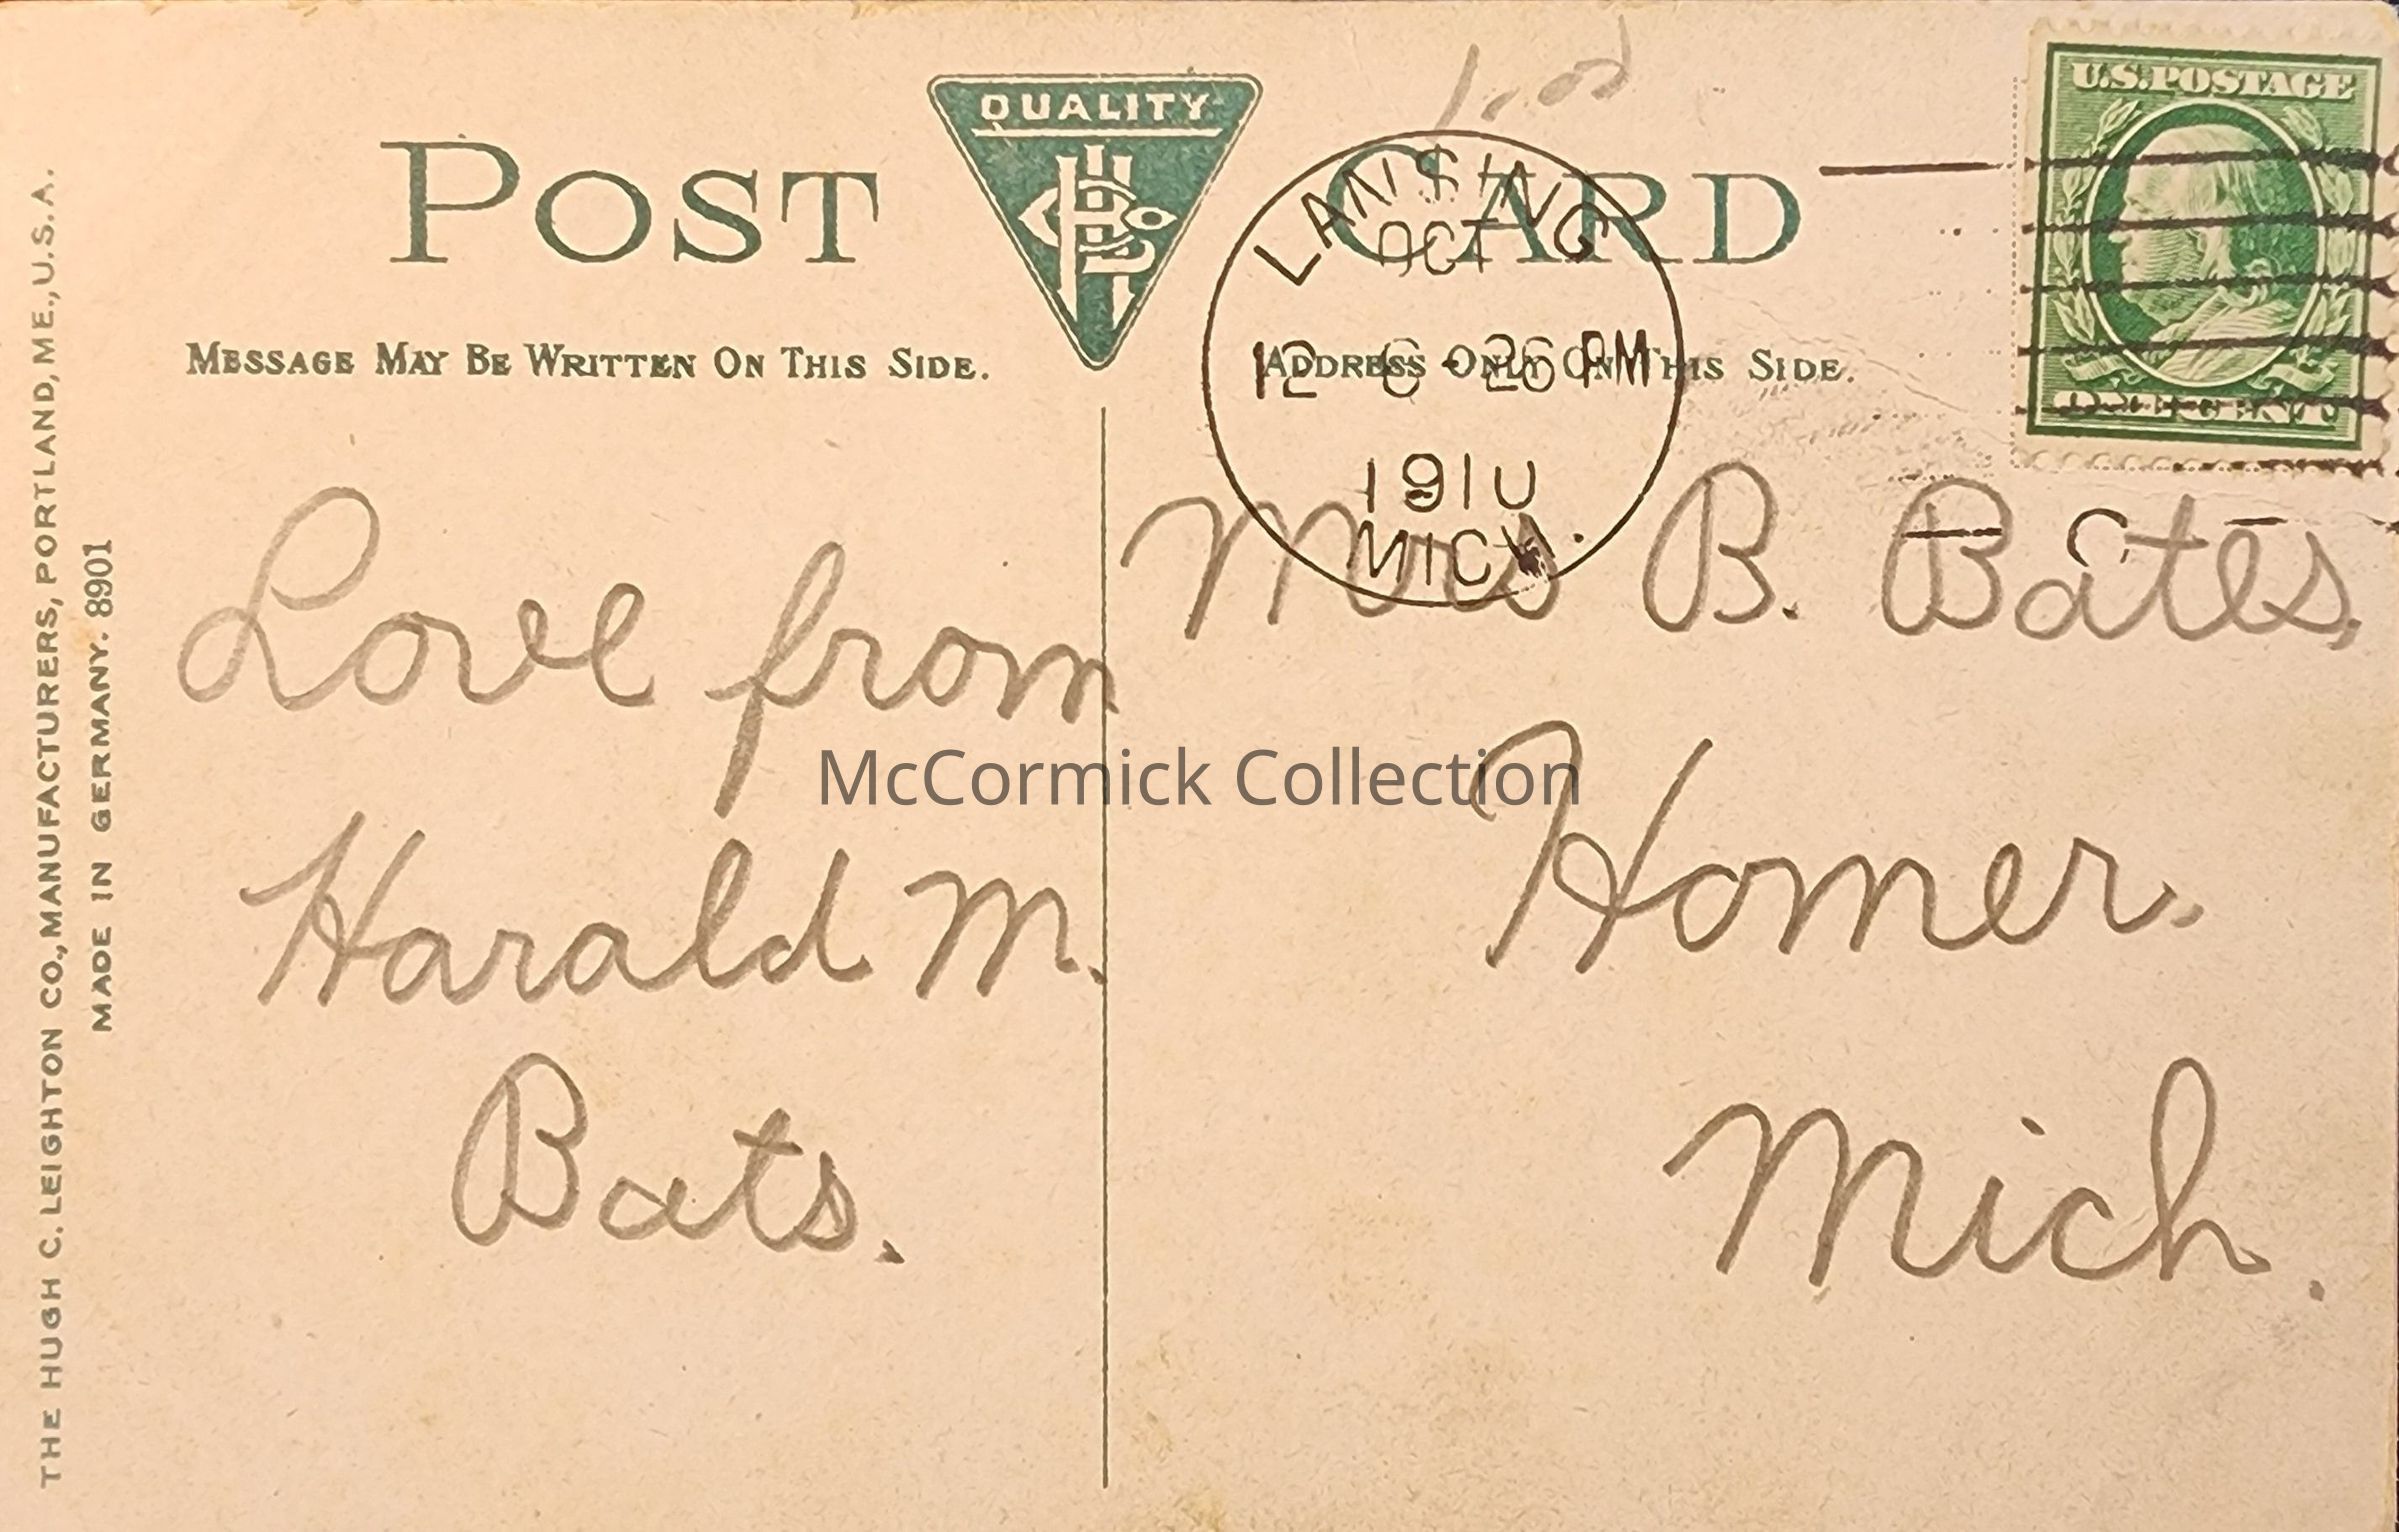 THE HUGH C. LEIGHTON CO., MANUFACTURERS, PORTLAND, ME., U.S.A.
MADE IN GERMANY. 8901
POST CARD
QUALITY
MESSAGE MAY BE WRITTEN ON THIS SIDE.
ADDRESS ONLY ON THIS SIDE.
U.S. POSTAGE
ONE CENT
LANSING
OCT
12 6-26 PM
1910
MICH.
Love from
Harald M.
Bats.
Mrs B. Bates,
Homer.
Mich.
McCormick Collection